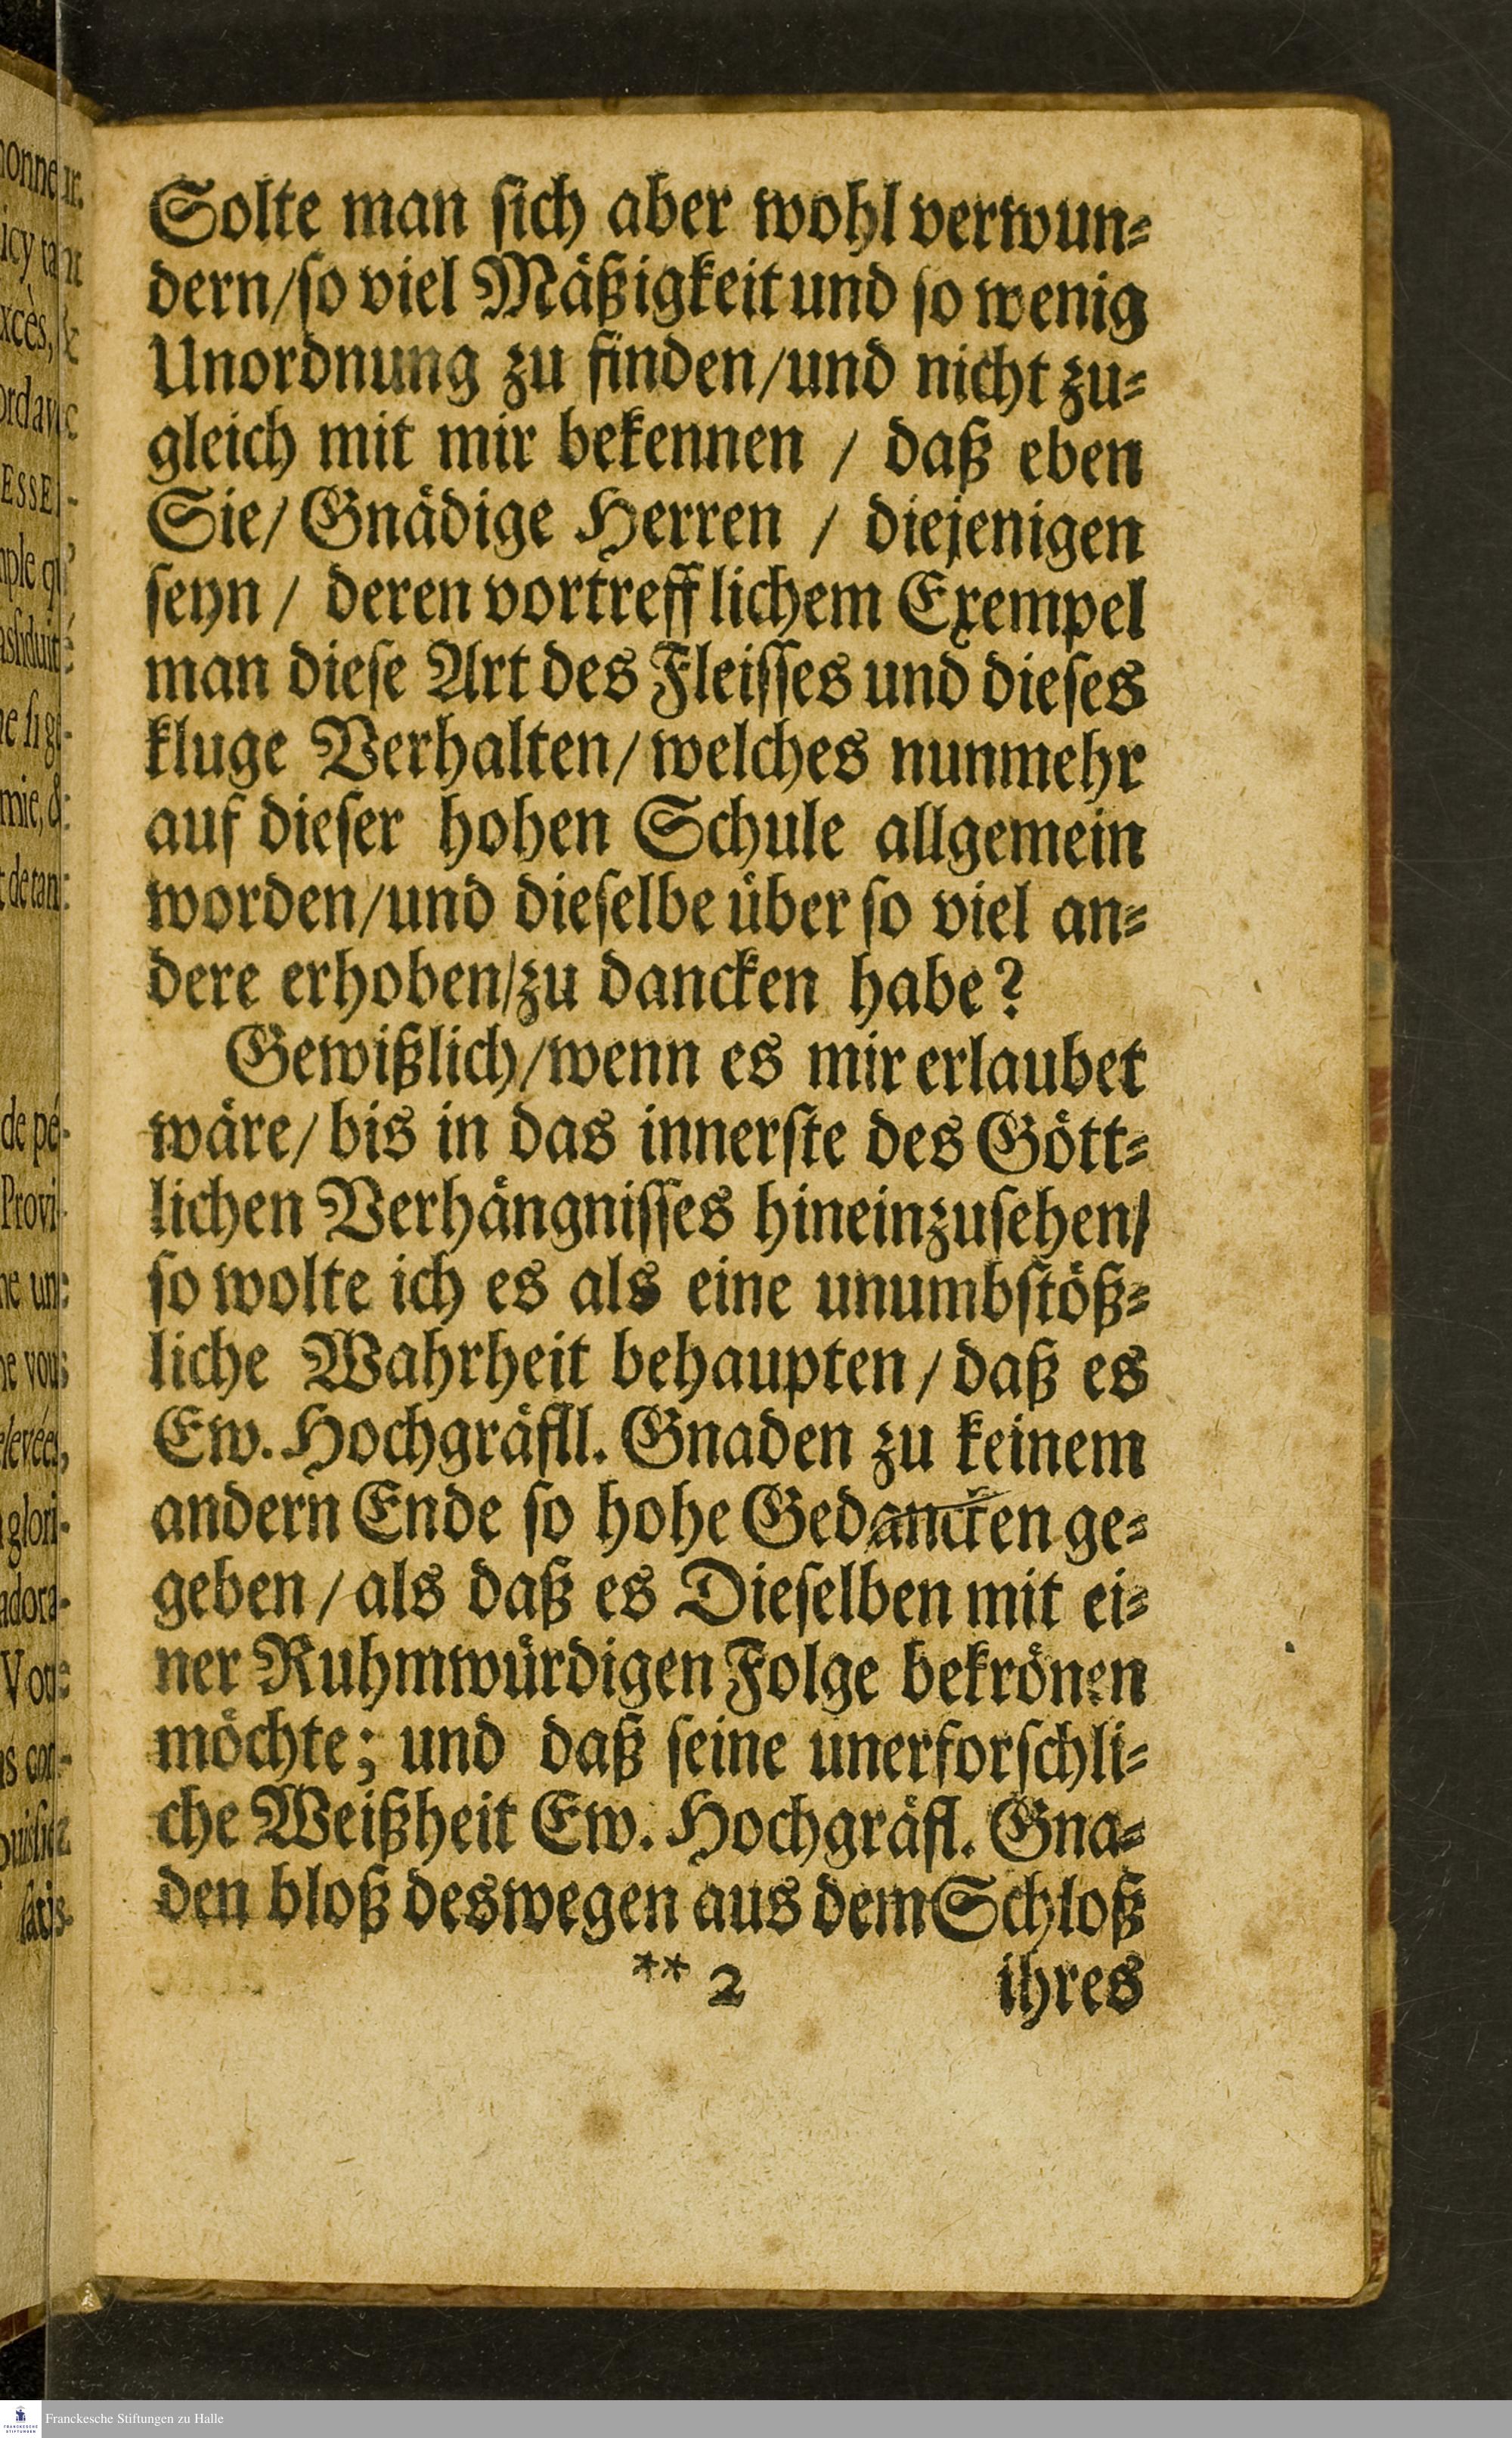 Solte man ſich aber wohl verwun⸗
dern/ſo viel Maͤßigkeit und ſo wenig
Unordnung zu finden/und nicht zu⸗
gleich mit mir bekennen / daß eben
Sie/ Gnaͤdige Herren / diejenigen
ſeyn / deren vortrefflichem Exempel
man dieſe Art des Fleiſſes und dieſes
kluge Verhalten/ welches nunmehr
auf dieſer hohen Schule allgemein
worden/und dieſelbe uͤber ſo viel an⸗
dere erhoben/zu dancken habe?
Gewißlich/wenn es mir erlaubet
waͤre/ bis in das innerſte des Goͤtt⸗
lichen Verhaͤngniſſes hineinzuſehen/
ſo wolte ich es als eine unumbſtoͤß⸗
liche Wahrheit behaupten / daß es
Ew. Hochgraͤfll. Gnaden zu keinem
andern Ende ſo hohe Gedancken ge⸗
geben / als daß es Dieſelben mit ei⸗
ner Ruhmwuͤrdigen Folge bekroͤnen
moͤchte; und daß ſeine unerforſchli⸗
che Weißheit Ew. Hochgraͤfl. Gna⸗
den bloß deswegen aus dem Schloß
** 2 ihres
Franckesche Stiftungen zu Halle